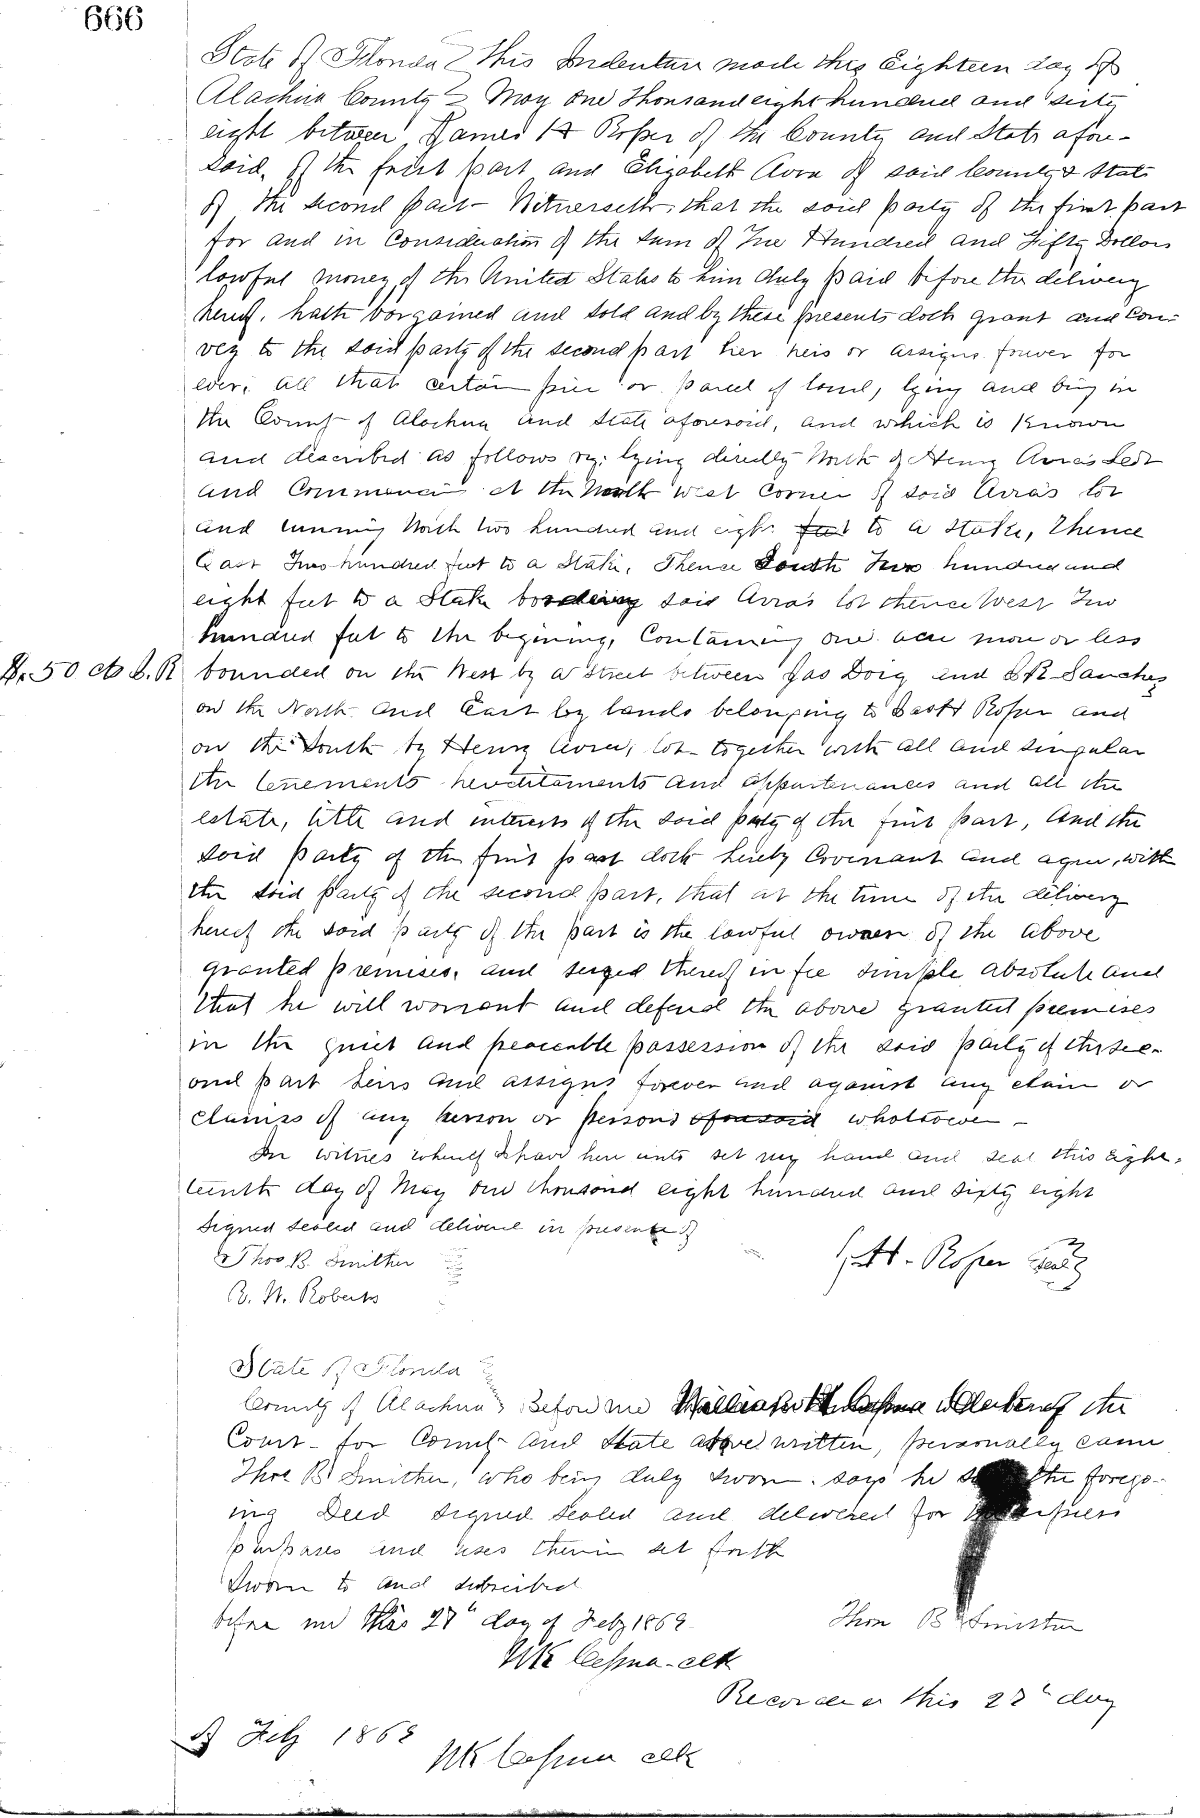 666
State of Florida } This Indenture made this Eighteen day of
Alachua County } May one thousand eight hundred and sixty
eight between James H Roper of the County and State afore-
said, of the first part and Elizabeth Avra of said County & State
of the second part - Witnesseth, that the said party of the first part
for and in Consideration of the sum of Two Hundred and Fifty Dollars
lawful money of the United States to him duly paid before the delivery
hereof, hath bargained and sold and by these presents doth grant and Con-
vey to the said party of the second part her heirs or assigns forever for
ever, all that certain piece or parcel of land, lying and being in
the County of Alachua and State aforesaid, and which is Known
and described as follows viz: lying directly North of Henry Avra's
and Commencing at the North West corner of said Avra's lot
and running North two hundred and eight feet to a stake, Thence
East Two hundred feet to a Stake, Thence South Two hundred and
eight feet to a Stake bordering said Avra's lot thence West Two
hundred feet to the begining, Containing one acre more or less
50 cts I. R bounded on the West by a Street between Jas Doig and S R Sanchez
on the North and East by lands belonging to Jas H Roper and
on the South by Henry Avra's lot together with all and singular
the tenements hereditaments and appurtenances and all the
estate, title and interests of the said party of the first part, And the
said party of the first part doth hereby Covenant and agree, with
the said party of the second part, that at the time of the delivery
hereof the said party of the part is the lawful owner of the above
granted premises, and seized thereof in fee simple absolute and
that he will warrant and defend the above granted premises
in the quiet and peaceable possession of the said party of the sec-
ond part heirs and assigns forever and against any claim or
claims of any person or persons aforesaid whatsoever -
In witness whereof I have here unto set my hand and seal this eigh-
teenth day of May one thousand eight hundred and sixty eight
Signed sealed and delivered in presence of
Thos B. Smither
B. W. Roberts
J. H. Roper Seal
State of Florida }
County of Alachua } Before me William K Cessna Clerk of the
Court - for County and State above written, personally came
Thos B Smither, who being duly sworn, says he the forego-
ing Deed signed sealed and delivered for
purposes and uses therein set forth
Sworn to and subscribed
before me this 27th day of Feby 1869
Thos B Smither
WK Cessna - clk
Recorded this 27th day
of Feby 1869
WK Cessna clk